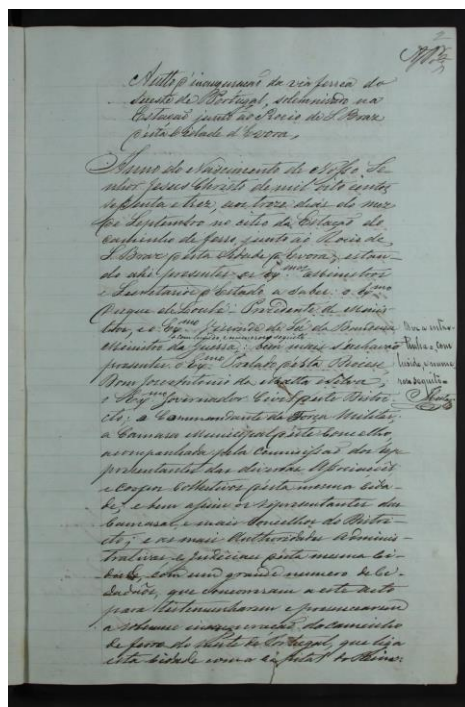 Auto d'inauguração da via ferrea do
Sueste de Portugal, solemnisado na
Estação junto ao Rocio de S. Braz
d'esta Cidade d'Evora,
Anno do Nascimento de Nosso Se-
nhor Jesus Christo de mil oito centos
sessenta e trez, aos treze dias do mez
de Septembro no citio da Estação do
caminho de ferro, junto ao Rocio de
S. Braz d'esta Cidade d'Evora, estan-
do ahi presentes os Ex.mos Ministros
e Secretarios d'Estado a saber: o Ex.mo
Duque de Loulé - Presidente de Minis-
tros, e o Ex.mo de Sá da Bandeira
Ministro da Guerra; bem mais s'achavão
presentes o Ex.mo Prelado d'esta Diocese
Dom José Antonio da Matta e Silva,
o Ex.mo Governador Civil d'este Distri-
cto; o Commandante da Força Militar,
a Camara Municipal d'este Concelho,
acompanhada pela Commissão dos Re-
presentantes das diversas Associações
e Corpos Collectivos d'esta mesma Cida-
de; e bem assim os representantes das
Camaras, e mais Concelhos do Distri-
cto; e as mais Authoridades Adminis-
trativas e Judiciaes d'esta mesma Ci-
dade, com um grande numero de Ci-
dadãos, que concorreram a este acto
para testemunharem e presenciarem
a solemne inauguração do caminho
de ferro do Sueste de Portugal, que liga
esta Cidade com a Capital do Reino: